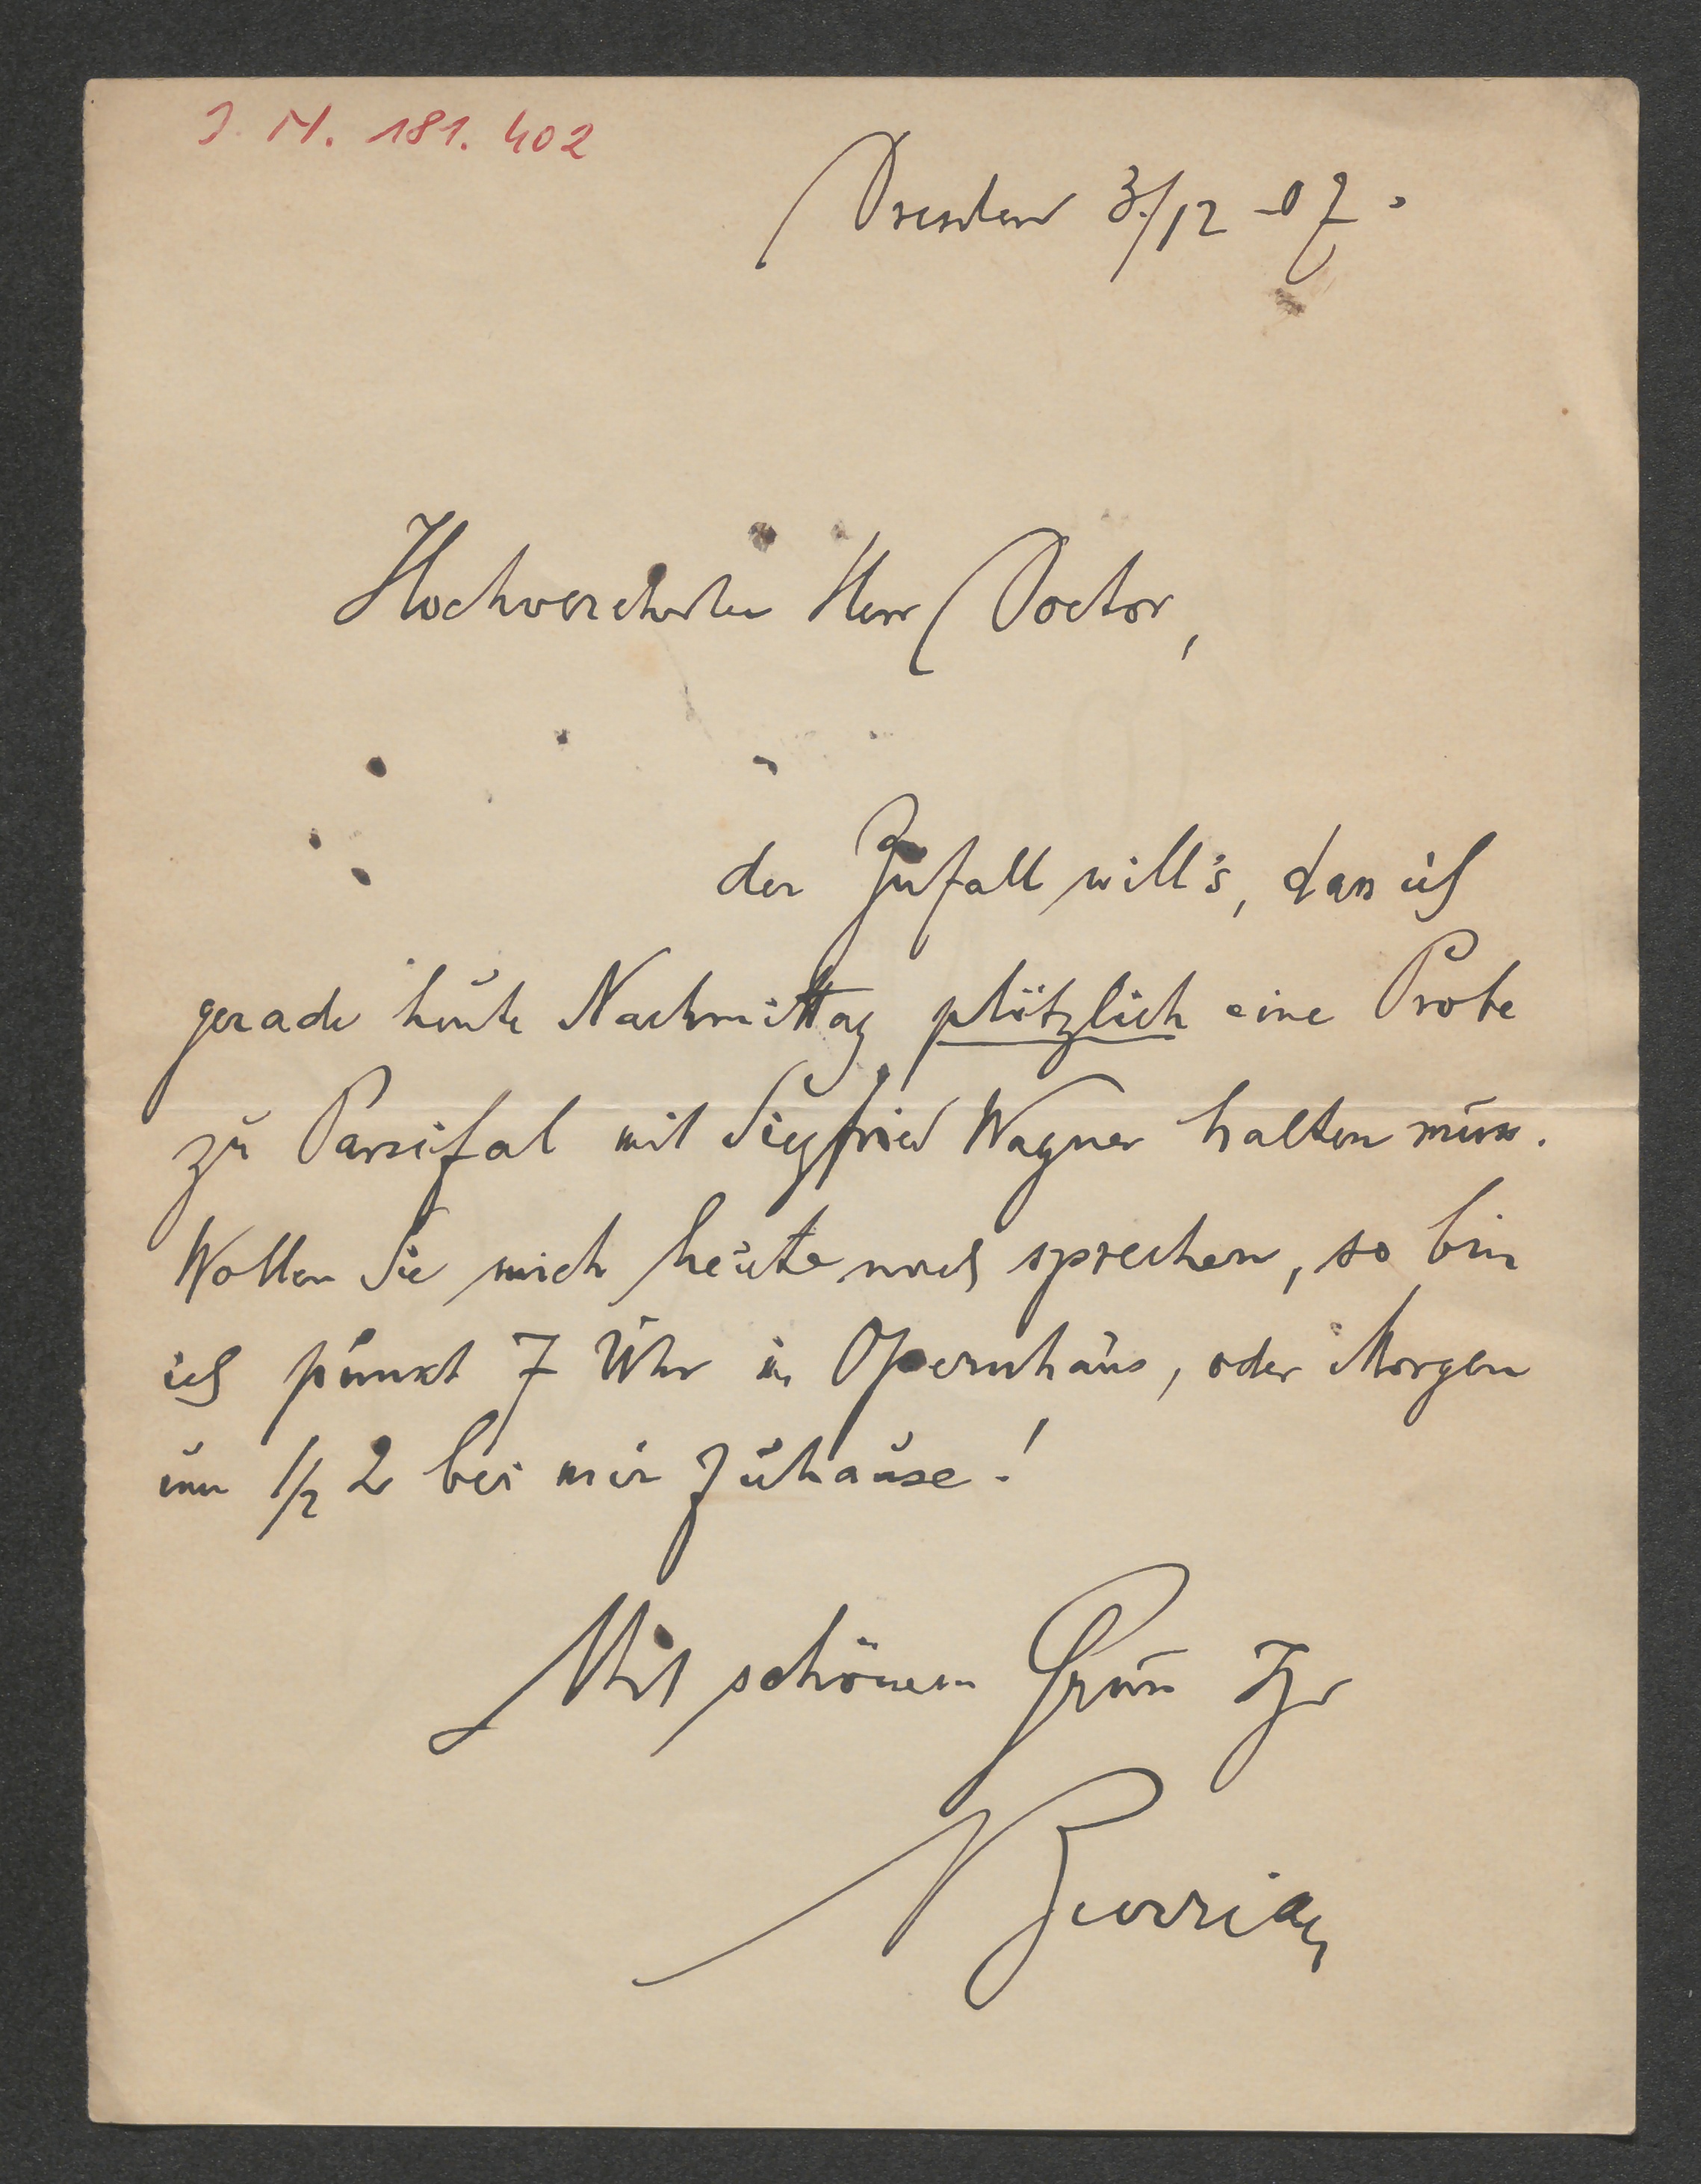 I. N. 181.402
Dresden 3./12 07.
Hochverehrter Herr Doctor,
der Zufall will's, dass ich
gerade heute Nachmittag plötzlich eine Probe
zu Parsifal mit Siegfried Wagner halten muss.
Wollen Sie mich heute noch sprechen, so bin
ich punkt 7 Uhr in Opernhaus, oder Morgen
um 1/2 2 bei mir zuhause!
Mit schönem Gruss Ihr
Burrian